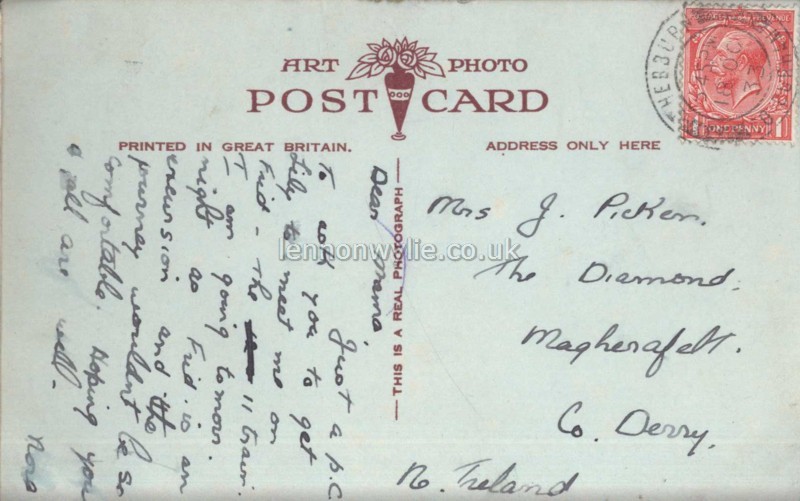 ART PHOTO
POST CARD
PRINTED IN GREAT BRITAIN.
ADDRESS ONLY HERE
THIS IS A REAL PHOTOGRAPH
Dear Mama
Just a p.c
To ask you to get
Lily to meet me on
Frid - The 11 train.
I am going tomorr.
night as Frid. is an
excursion and the
journey wouldnt be so
comfortable. Hoping you
& all are well.
Nora
Mrs J. Picken.
The Diamond.
Magherafelt.
Co. Derry.
No. Ireland
ONE PENNY
lennonwylie.co.uk